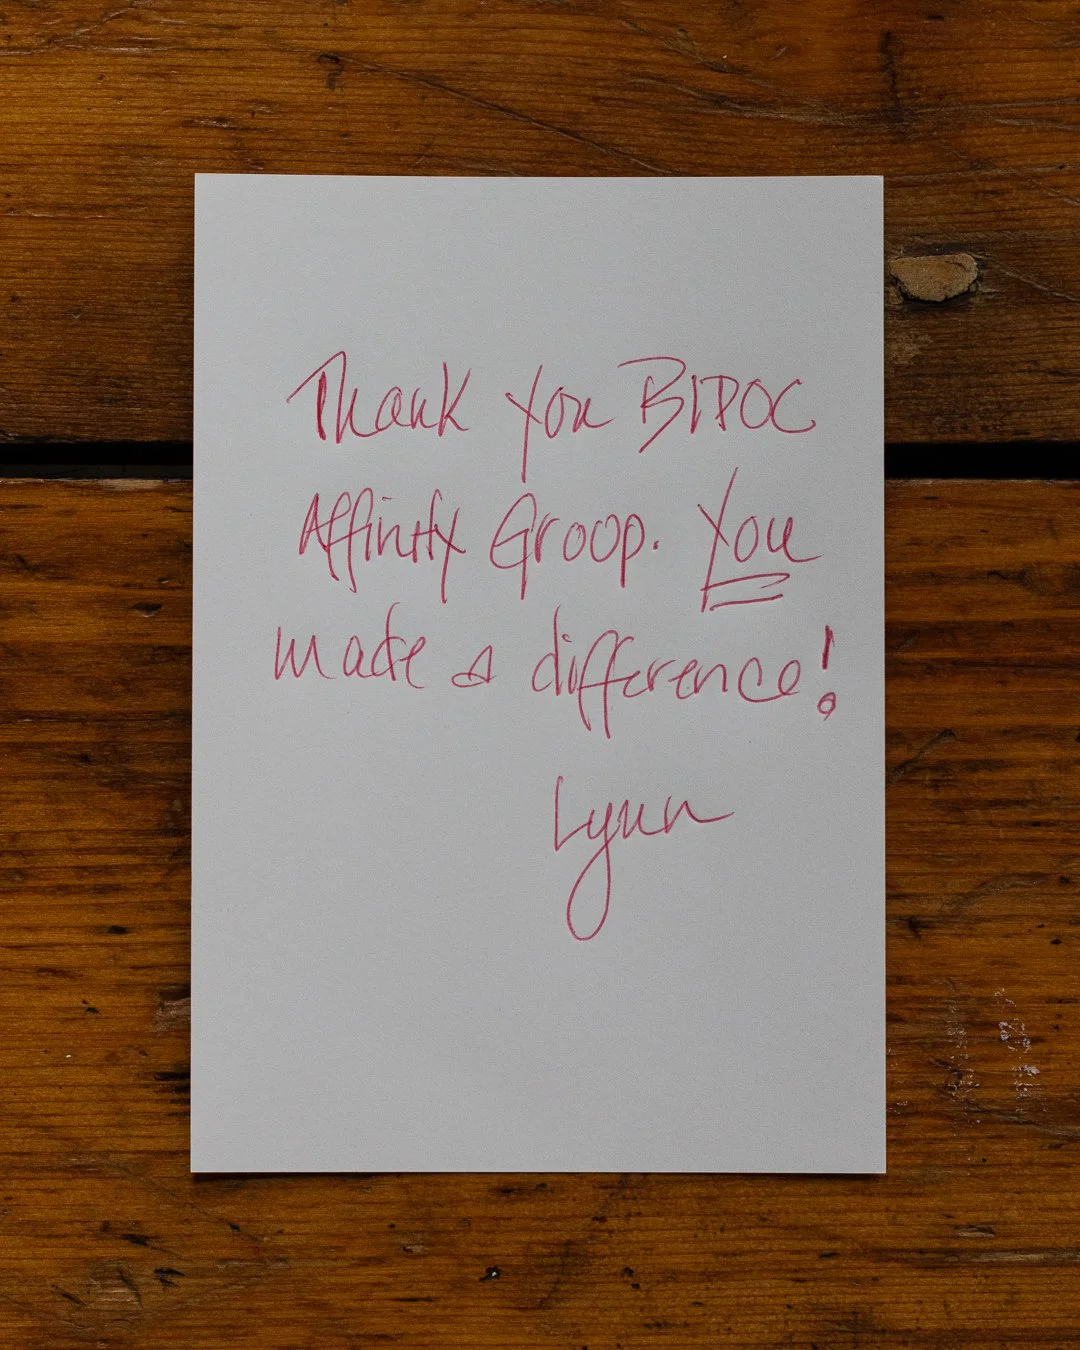 Thank you BIPOC
Affinity Group. You
made a difference!
Lynn